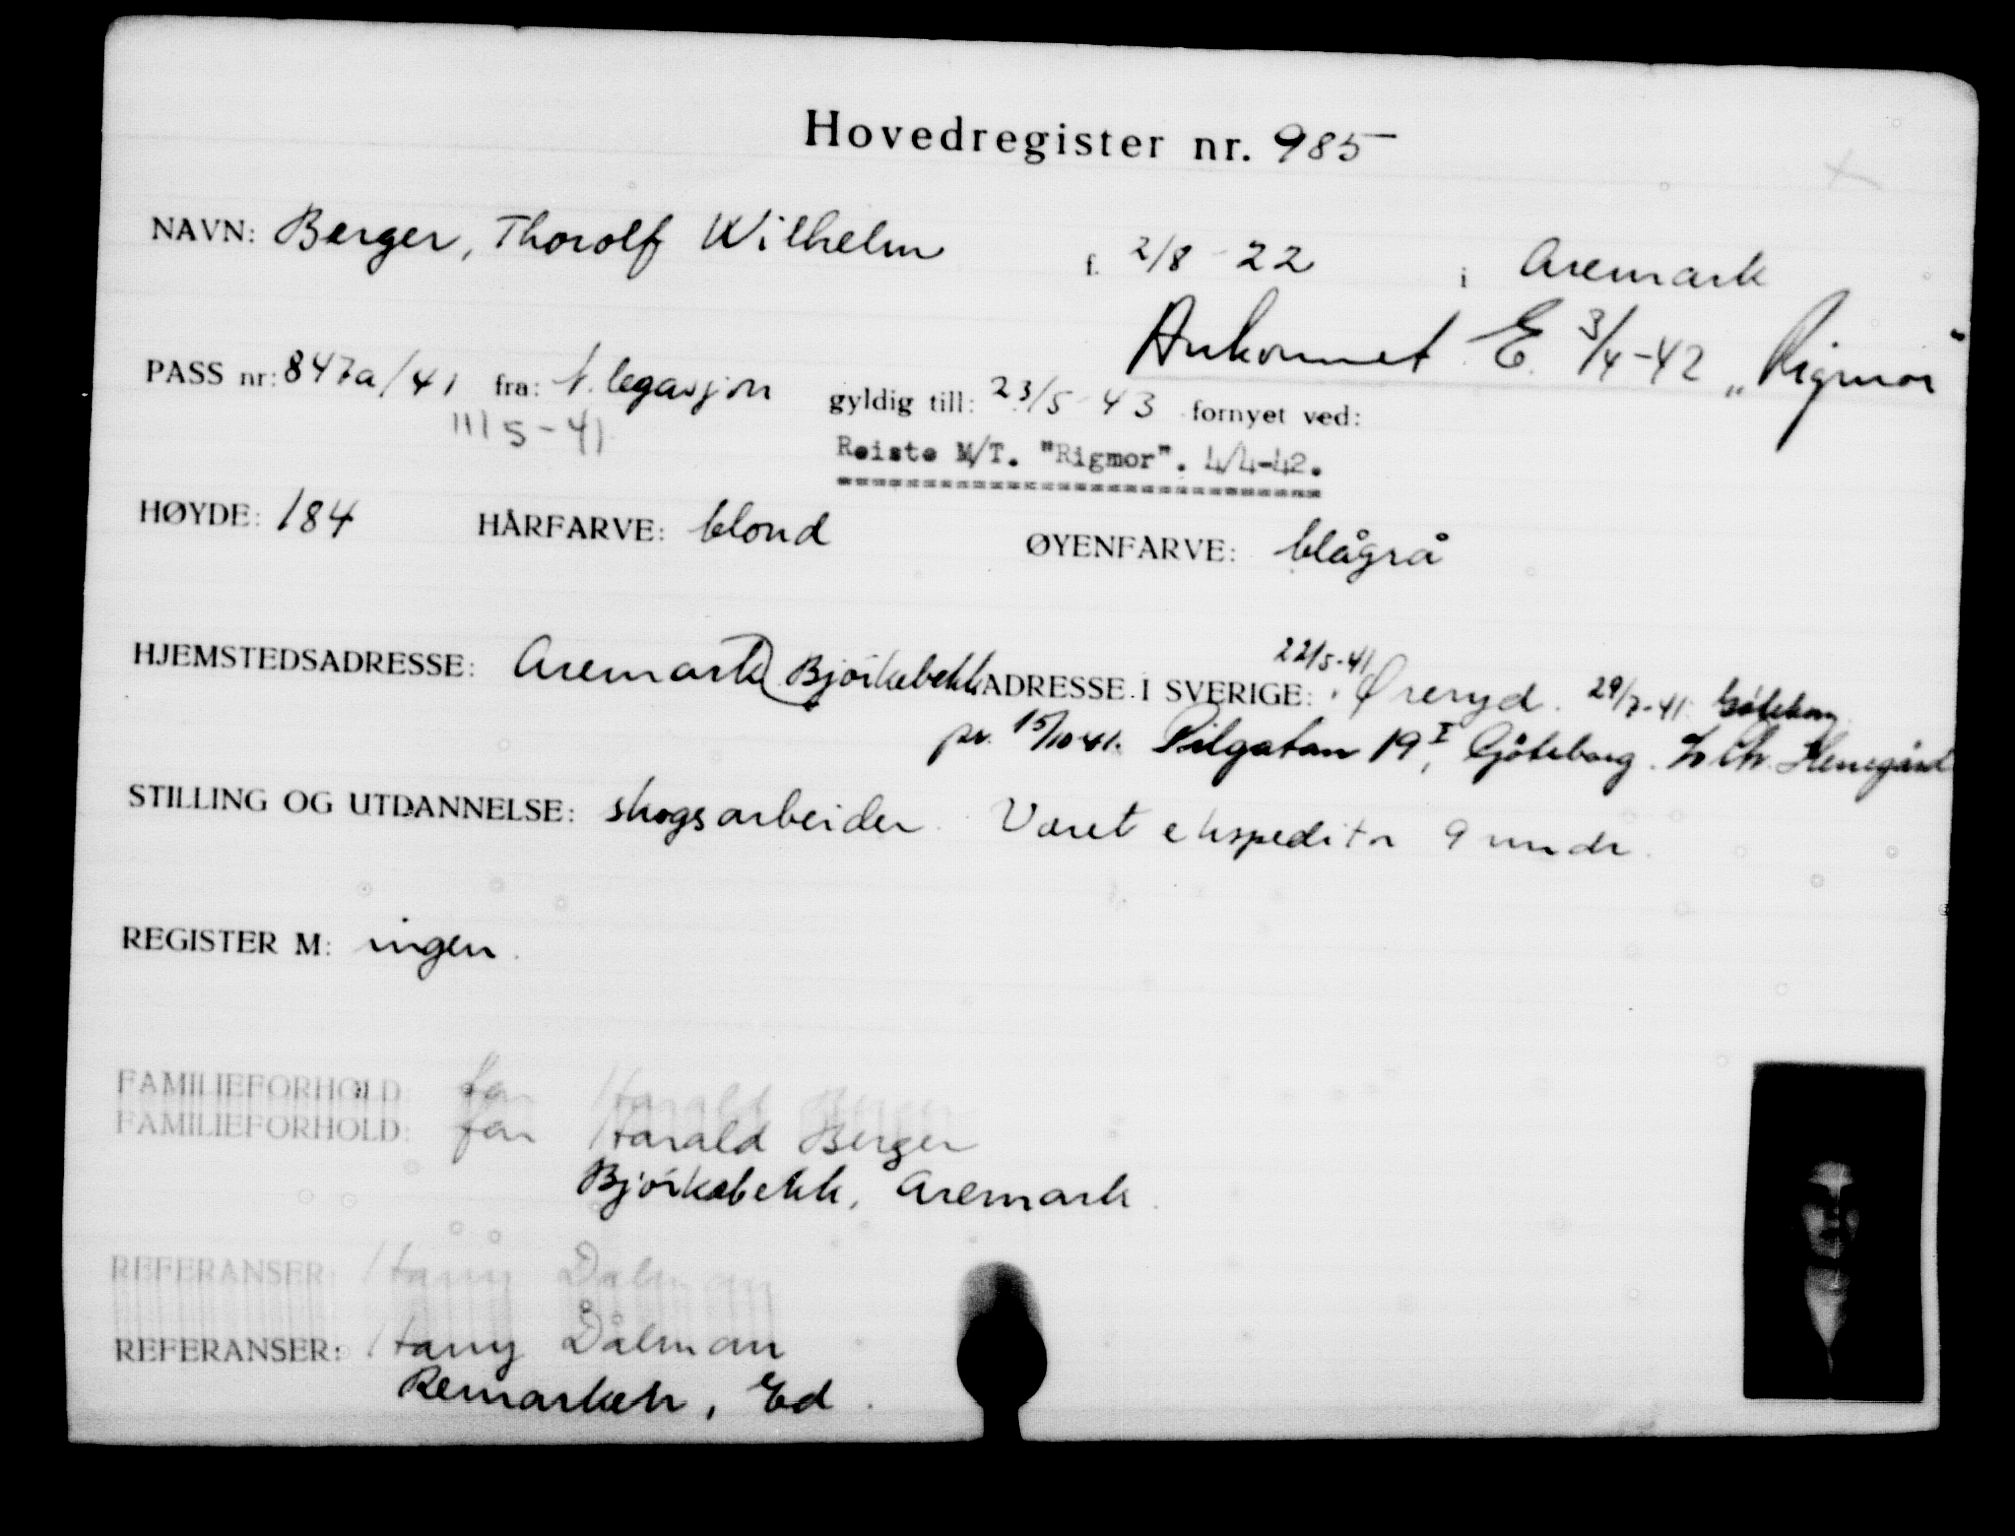 Hovedregister nr. 985
NAVN: Berger, Thorolf Wilhelm f. 2/8-22 i Aremark
Ankommet E. 3/4-42 „Rigmor"
PASS nr: 847a/41 fra: N. legasjon gyldig till: 23/5-43 fornyet ved:
5-41
Reiste M/T. "Rigmor". 4/4-42.
HØYDE: 184 HÅRFARVE: blond ØYENFARVE: blågrå
22/5-41
HJEMSTEDSADRESSE: Aremark Bjørkebekk ADRESSE I SVERIGE: Øreryd. 29/7-41. Göteborg
pr. 15/10 41. Pilgatan 19 I, Göteborg.
STILLING OG UTDANNELSE: skogsarbeider. Været ekspeditør 9 mndr.
REGISTER M: ingen.
FAMILIEFORHOLD: far Harald Berger
FAMILIEFORHOLD: far Harald Berger
Bjørkebekk, Aremark.
REFERANSER: Harry Dalman
REFERANSER: Harry Dålman
Ed.